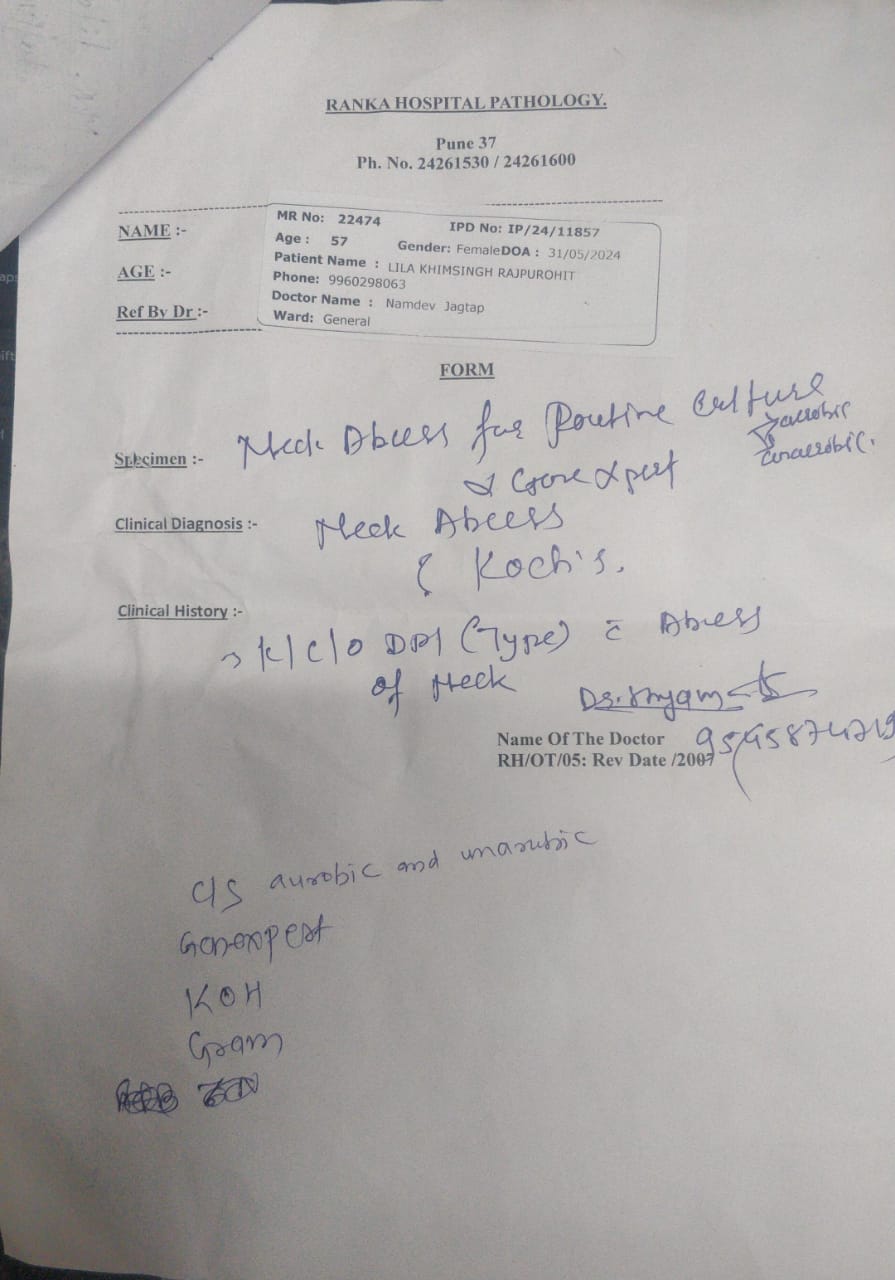 RANKA HOSPITAL PATHOLOGY.
Pune 37
Ph. No. 24261530 / 24261600
NAME :-
AGE :-
Ref By Dr :-
MR No: 22474 IPD No: IP/24/11857
Age : 57 Gender: Female DOA : 31/05/2024
Patient Name : LILA KHIMSINGH RAJPUROHIT
Phone: 9960298063
Doctor Name : Namdev Jagtap
Ward: General
FORM
Specimen :- Neck Abcess for Routine Culture aerobic
anaerobic.
& Gene Xpert
Clinical Diagnosis :- Neck Abcess
Koch's.
Clinical History :-
→ K/C/O (Type) c̄ Abcess
of Neck
Name Of The Doctor
RH/OT/05: Rev Date /2007
C/S aurobic and unarubic
Genexpert
KOH
Gram